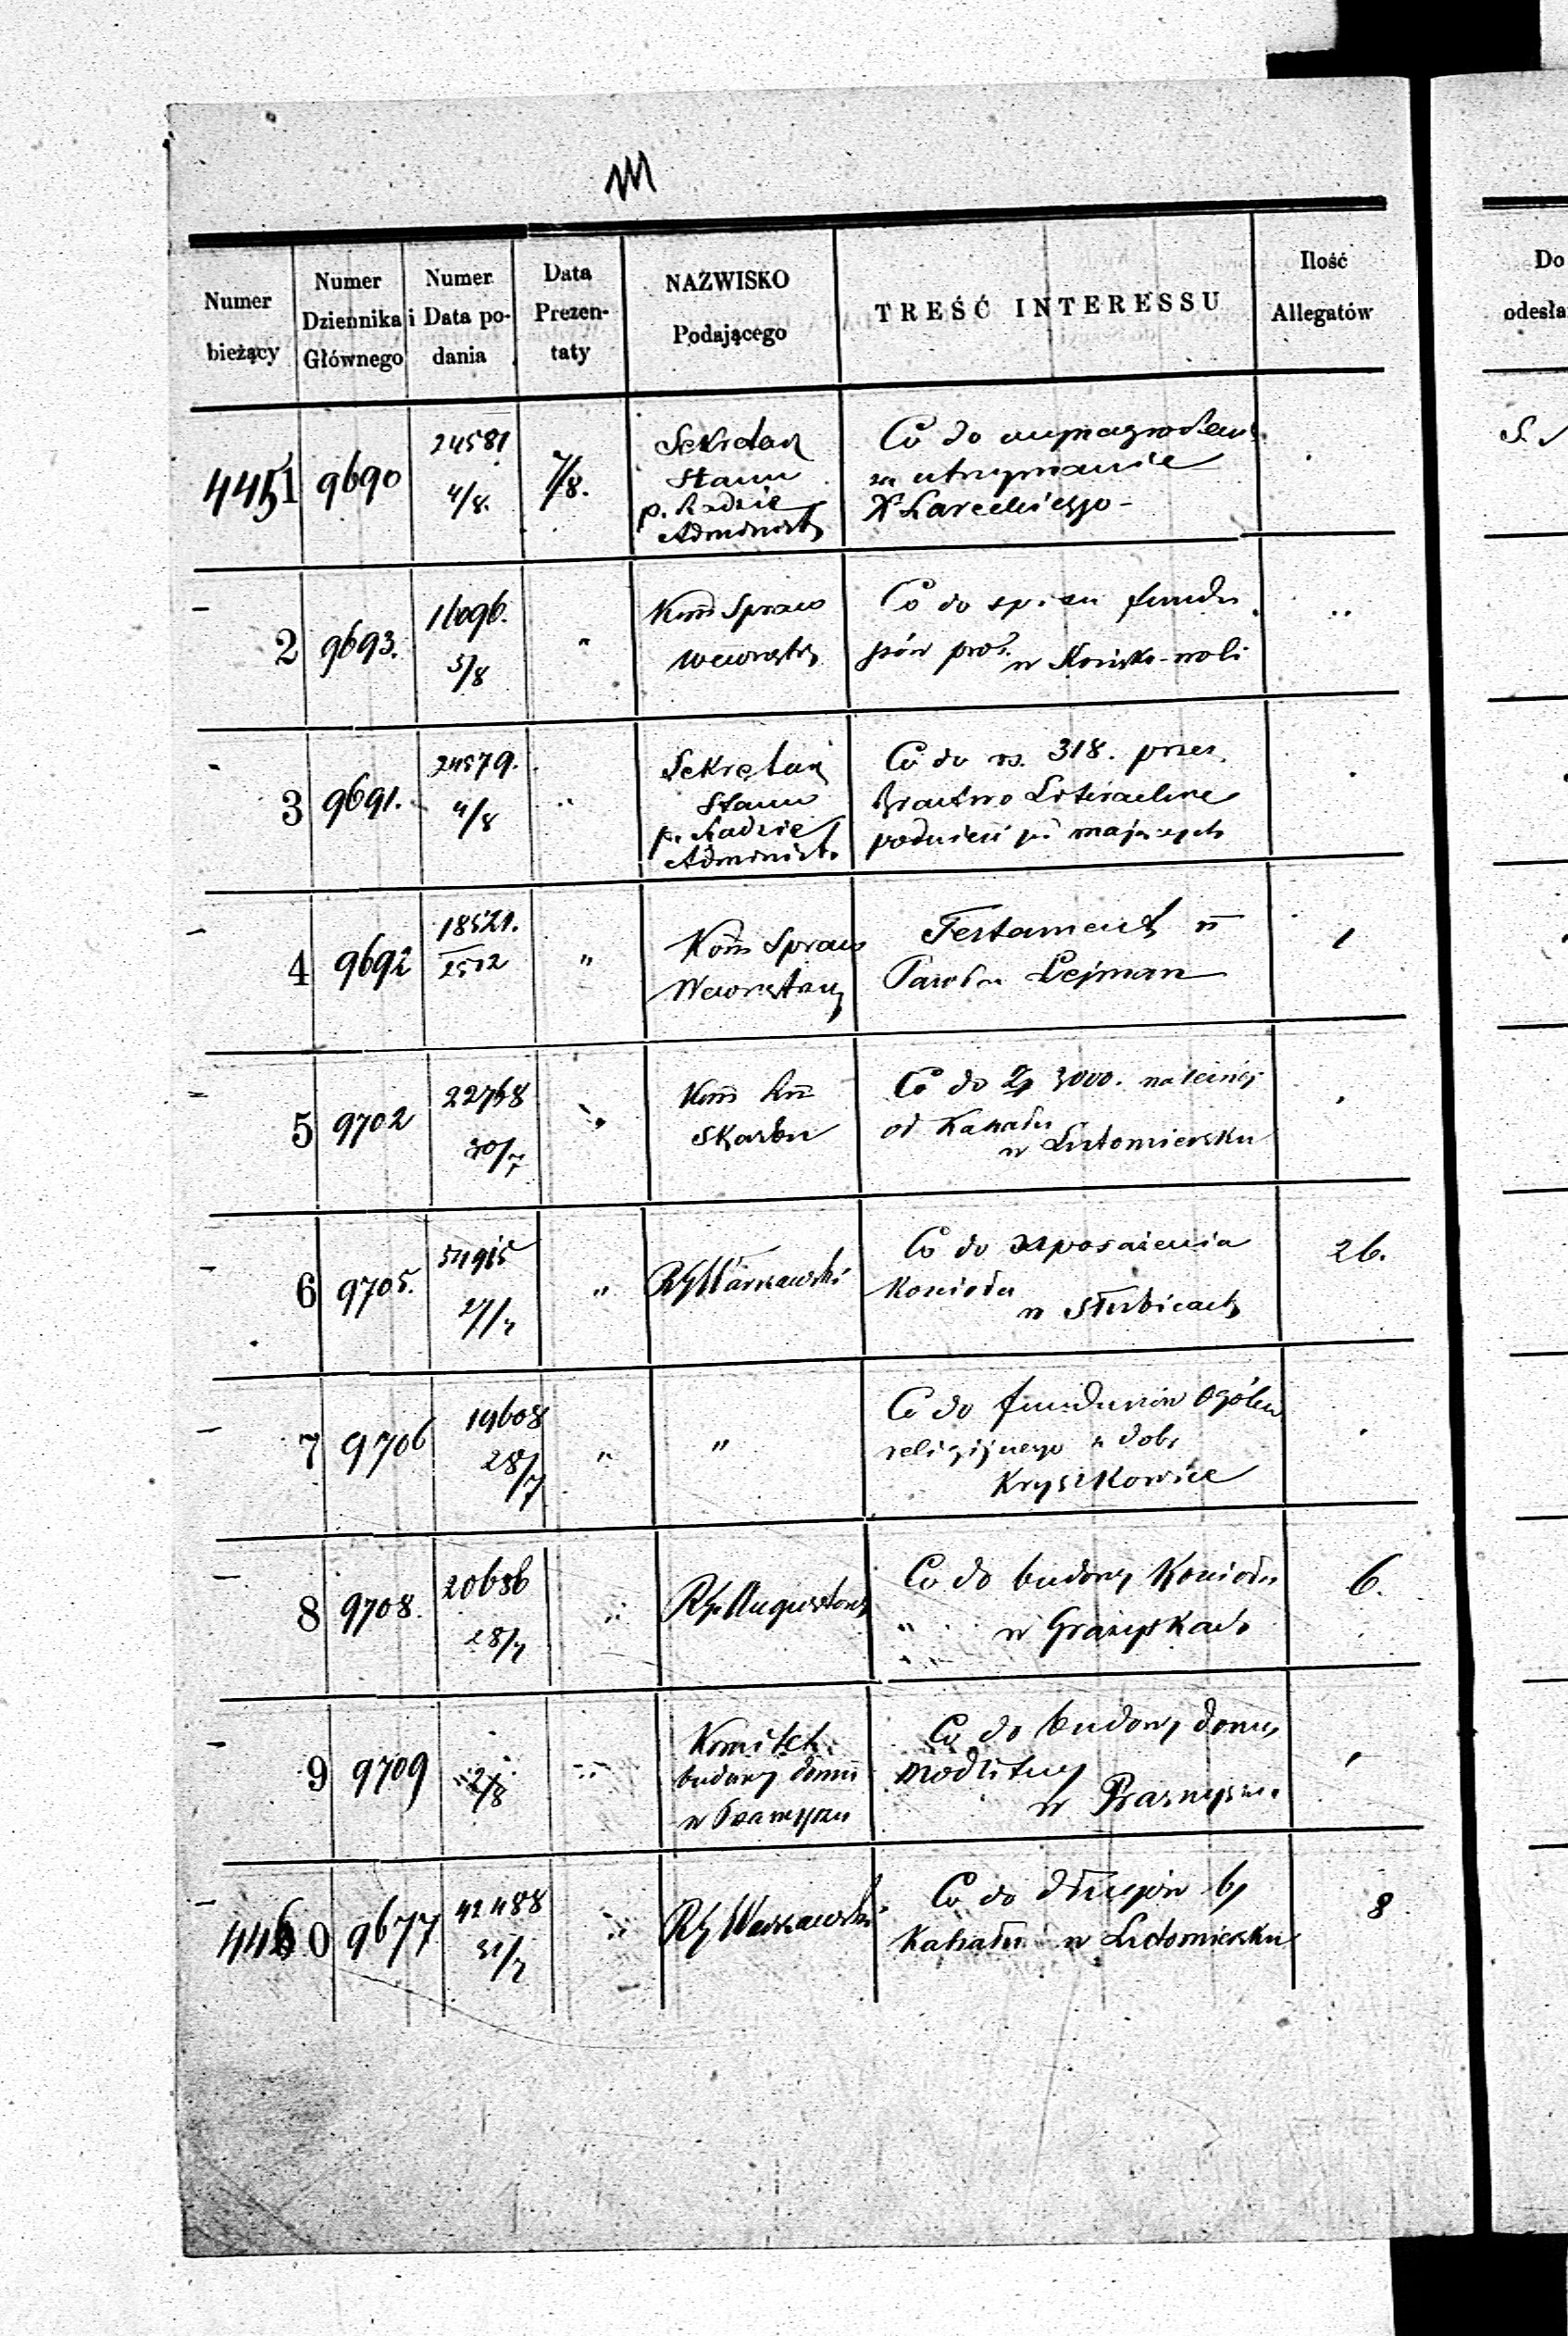 Numer bieżący
Numer Dziennika Głównego
Numer i Data podania
Data Prezentaty
NAZWISKO Podającego
TREŚĆ INTERESSU
Ilość Allegatów
Do
odesła
4451 9690 24581 4/8. 7/8.
Sekretarz
Stanu
p. Radzie
Administ
Co do wynagrodzen
za utrzymanie
2 9693. 11096. 5/8 "
Kom Spraw
Wewnętrz
Co do fundu
w Końsko-woli
3 9691. 24579. 4/8 "
Sekretarz
Stanu
p. Radzie
Administ.
Co do rs. 318. przez
Bractwo Literackie
podnieść mających
4 9692 18521. 2512 "
Kom Spraw
Wewnętrz
Testament
Lejman
1
5 9702 22768 30/7 "
Kom
Skarbu
Co do Zp 3000. należnej
od Kahału
w Lutomiersku
6 9705. 27/7 "
RG Warszawski
Co do uposażenia
Kościoła
w Słubicach
26.
7 9706 19608 28/7 " "
Co do funduszów Ogólno
religijnego z dobr
Kryszkowice
8 9708. 20686 28/7 "
RG Augustows
Co do budowy Kościoła
w Grażyszkach
6.
9 9709 2/8 "
Komitet
budowy domu
w Prasnyszu
Co do budowy domu
modlitwy
w Prasnyszu.
4460 9677 42488 31/7 "
RG Warszawski
Co do długów by
Kahału w Lutomiersku
8